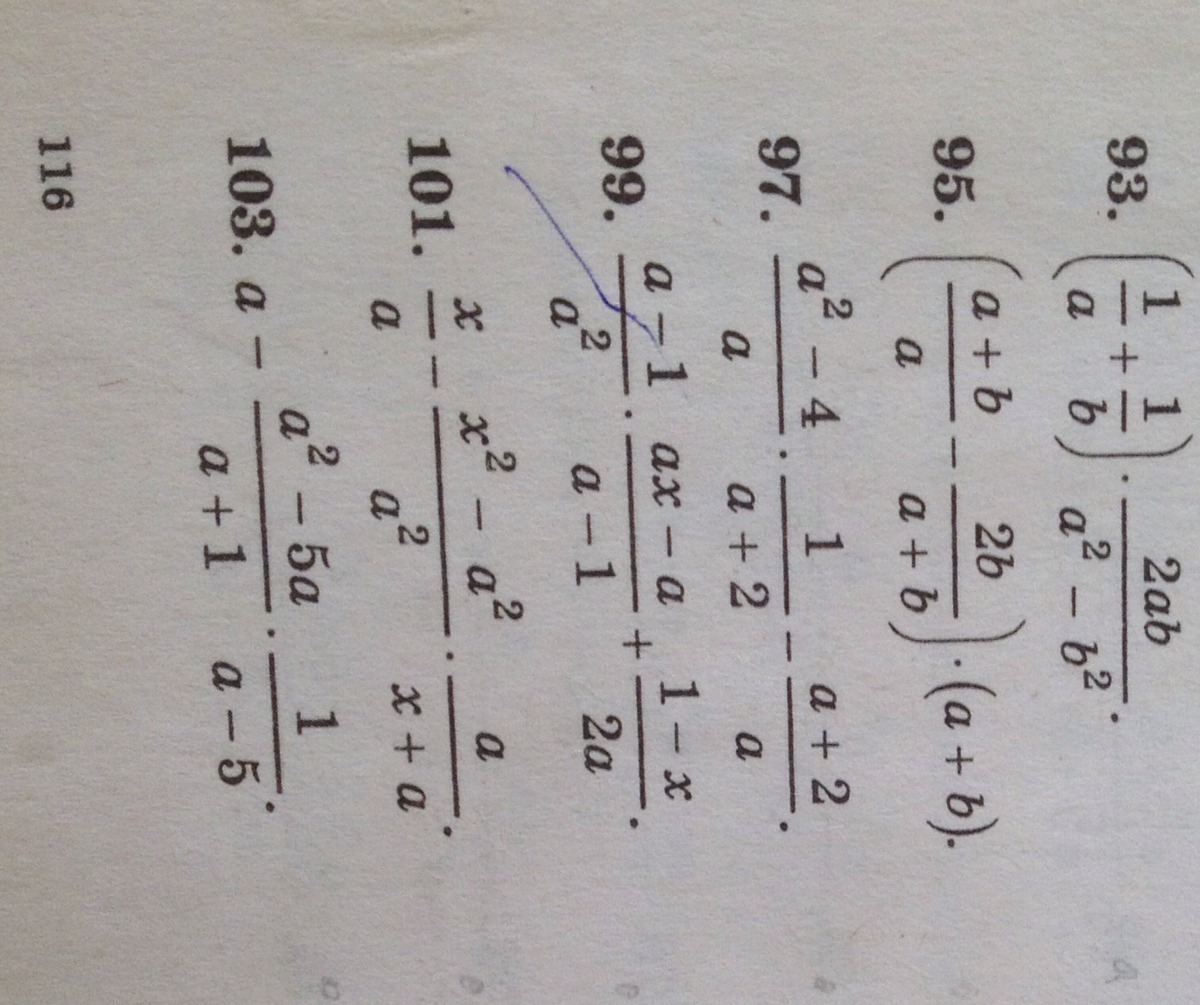 93. (1/a + 1/b) · 2ab/(a² − b²).
95. ((a + b)/a − 2b/(a + b)) · (a + b).
97. (a² − 4)/a · 1/(a + 2) − (a + 2)/a.
99. (a − 1)/a² · (ax − a)/(a − 1) + (1 − x)/2a.
101. x/a − (x² − a²)/a² · a/(x + a).
103. a − (a² − 5a)/(a + 1) · 1/(a − 5).
116